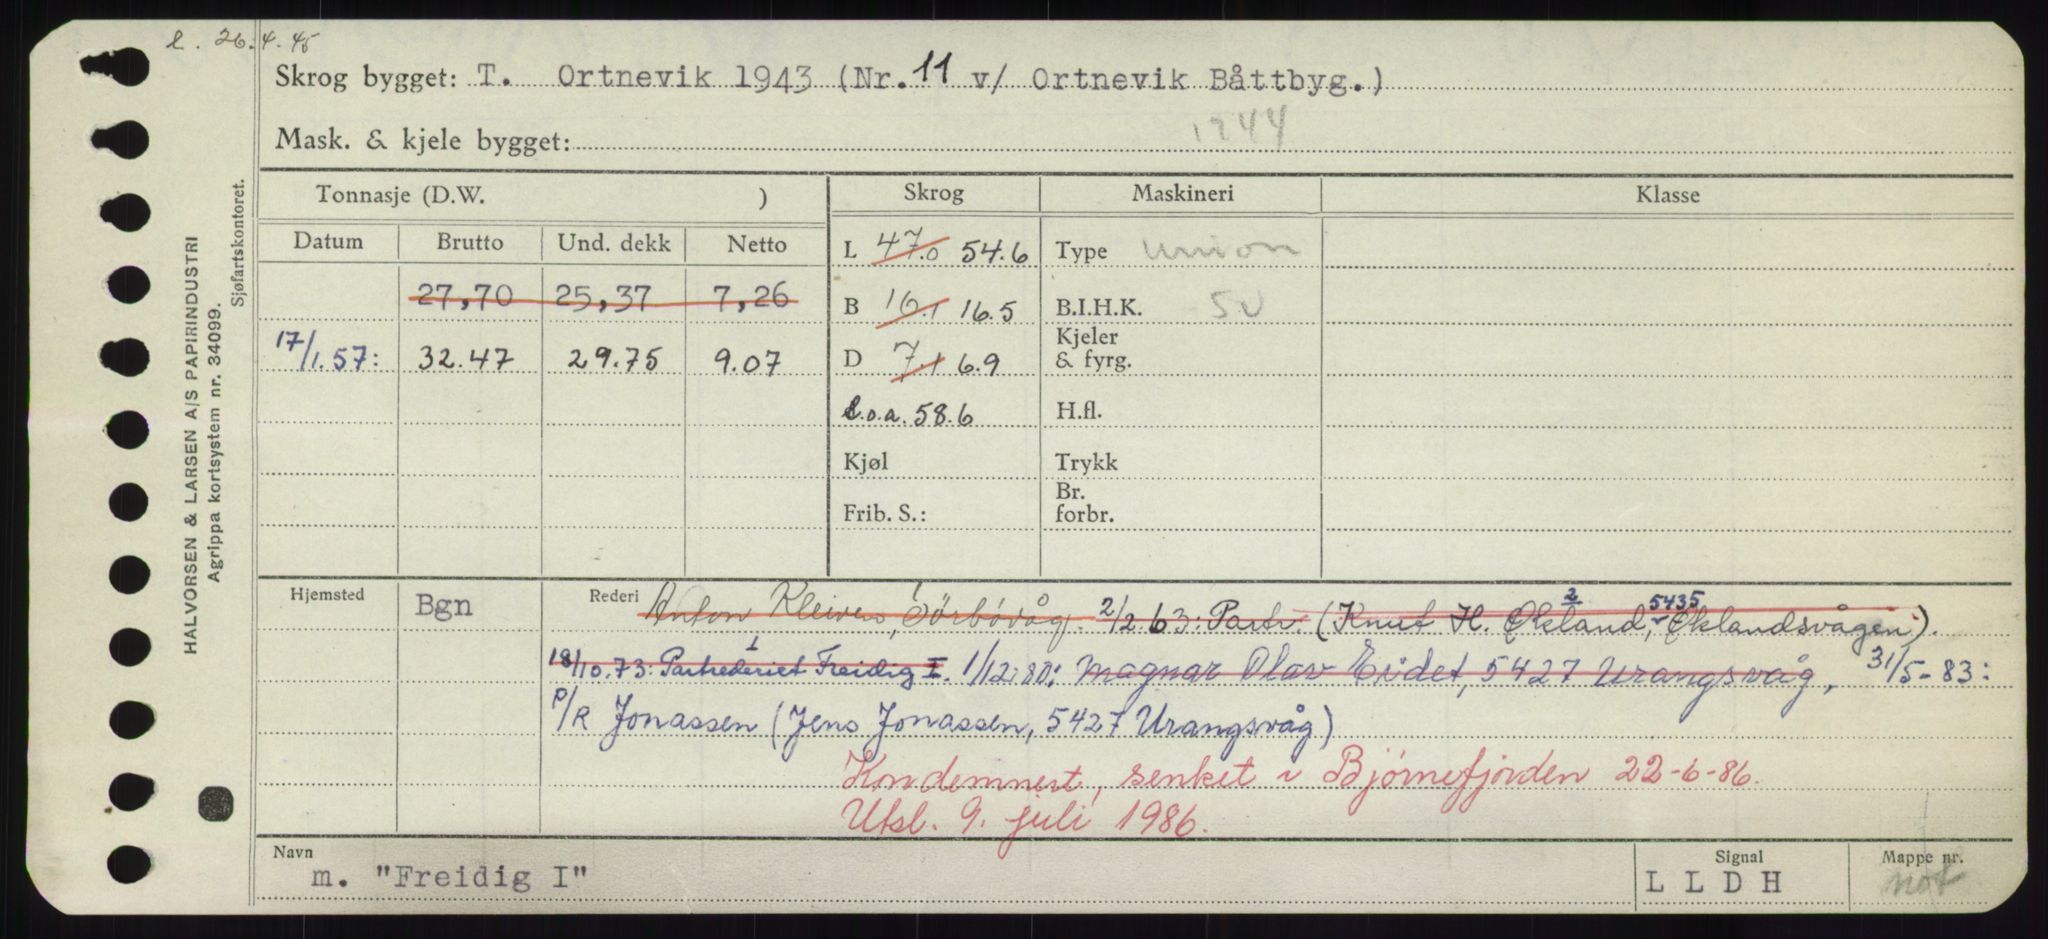 l. 26.4.45
Skrog bygget: T. Ortnevik 1943 (Nr. 11 v/ Ortnevik Båttbyg.)
Mask. & kjele bygget: 1944
Tonnasje (D.W. )
Skrog
Maskineri
Klasse
Datum Brutto Und. dekk Netto
L 47.0 54.6
Type Union
27,70 25,37 7,26
B 16.1 16.5
B.I.H.K. 50
17/1.57: 32.47 29.75 9.07
D 7.1 6.9
Kjeler
& fyrg.
l.o.a. 58.6
H.fl.
Kjøl
Trykk
Frib. S.:
Br.
forbr.
Hjemsted Bgn
Rederi Anton Kleiven, Sørbøvåg. 2/2.63: Partr. (Knut H. Økland, 5435 Øklandsvågen).
18/10.73: Partrederiet Freidig I. 1/12.80: Magnar Olav Eidet, 5427 Urangsvåg, 31/5-83:
P/R Jonassen (Jens Jonassen, 5427 Urangsvåg)
Kondemnert, senket i Bjørnefjorden 22-6-86.
Utsl. 9. juli 1986.
Navn
m. "Freidig I"
Signal
L L D H
Mappe nr.
not
HALVORSEN & LARSEN A/S PAPIRINDUSTRI
Agrippa kortsystem nr. 34099.
Sjøfartskontoret.